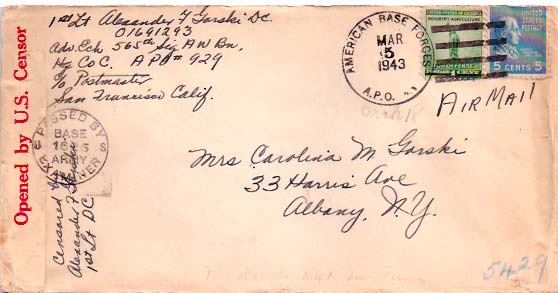 1st Lt Alexander F Gorski DC.
01691293
Adv. Ech 565th Sig A W Bn,
Hq Co C. A P O # 929
c/o Postmaster
San Francisco Calif.
AMERICAN BASE FORCES
MAR
5
1943
A.P.O.
INDUSTRY AGRICULTURE
FOR DEFENSE
UNITED STATES POSTAGE
5 CENTS 5
AIR MAIL
Opened by U.S. Censor
PASSED BY
BASE
ARMY
EXAMINER
U S
Censored by
Alexander F Gorski
1st Lt DC
Mrs Carolina M Gorski
33 Harris Ave
Albany, N.Y.
5429